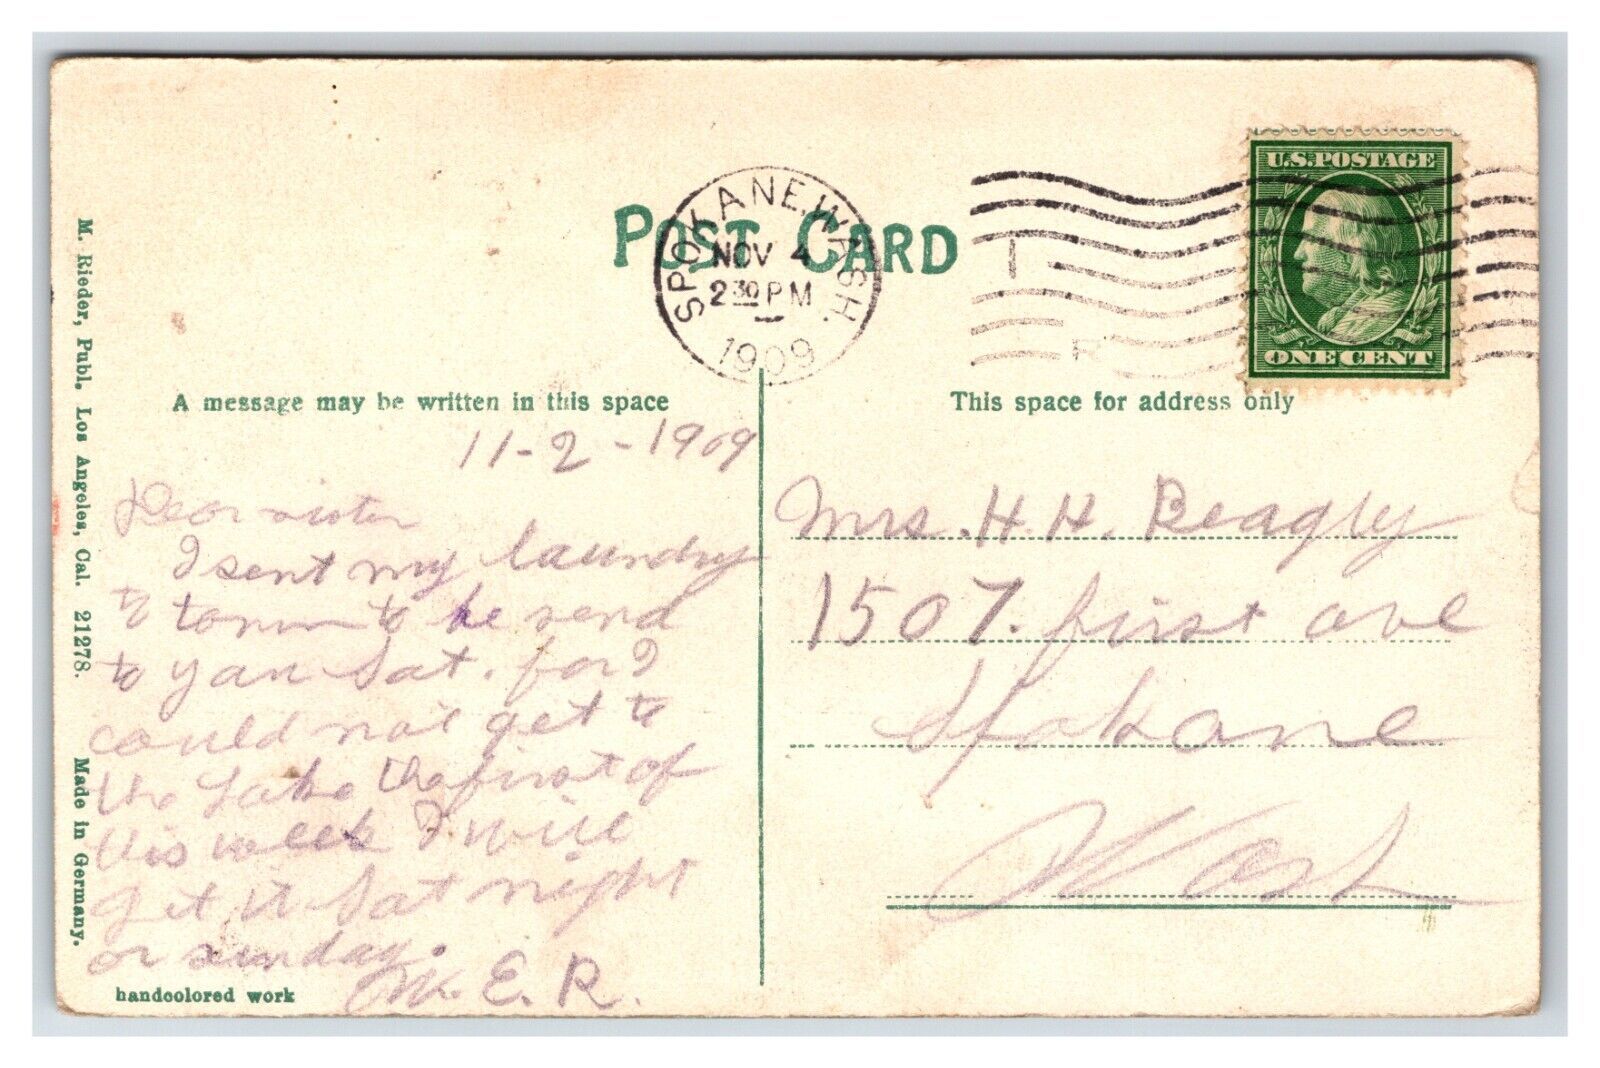 POST CARD
SPOKANE, WASH.
NOV 4
2 30 PM
1909
U.S. POSTAGE
ONE CENT
A message may be written in this space
This space for address only
11-2-1909
Dear sister
I sent my laundry
to town to be send
to yan Sat. for I
could not get to
the Lake the first of
this week I will
get it Sat night
or sunday.
M. E. R.
Mrs. H. H. Beagly
1507. first ave
Spokane
Wash
M. Rieder, Publ. Los Angeles, Cal. 21278. Made in Germany.
handcolored work